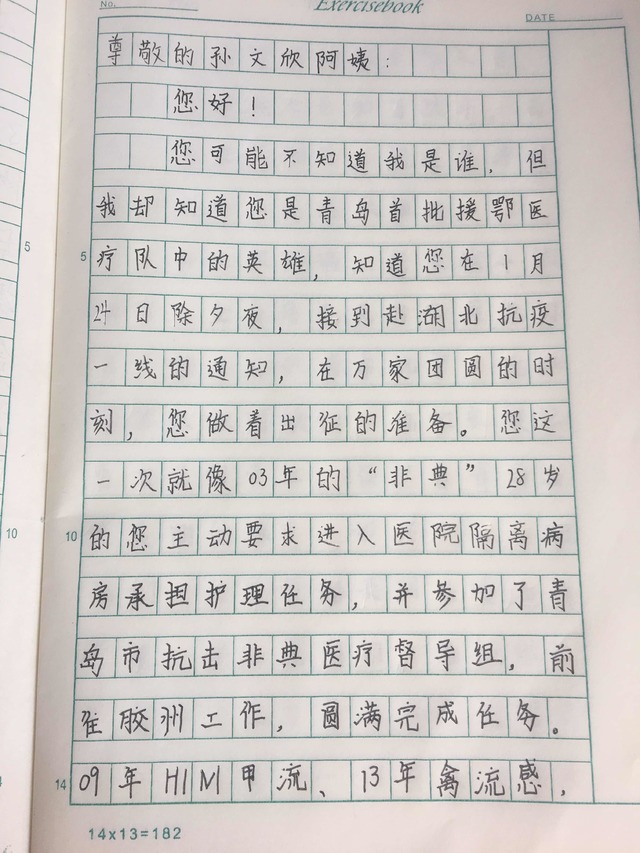 No.
Exercisebook
DATE
尊敬的孙文欣阿姨：
您好！
您可能不知道我是谁，但
我却知道您是青岛首批援鄂医
5
5
疗队中的英雄，知道您在1月
24日除夕夜，接到赴湖北抗疫
一线的通知，在万家团圆的时
刻，您做着出征的准备。您这
一次就像03年的“非典”28岁
10
10
的您主动要求进入医院隔离病
房承担护理任务，并参加了青
岛市抗击非典医疗督导组，前
往胶州工作，圆满完成任务。
14
09年H1M甲流、13年禽流感，
14x13=182